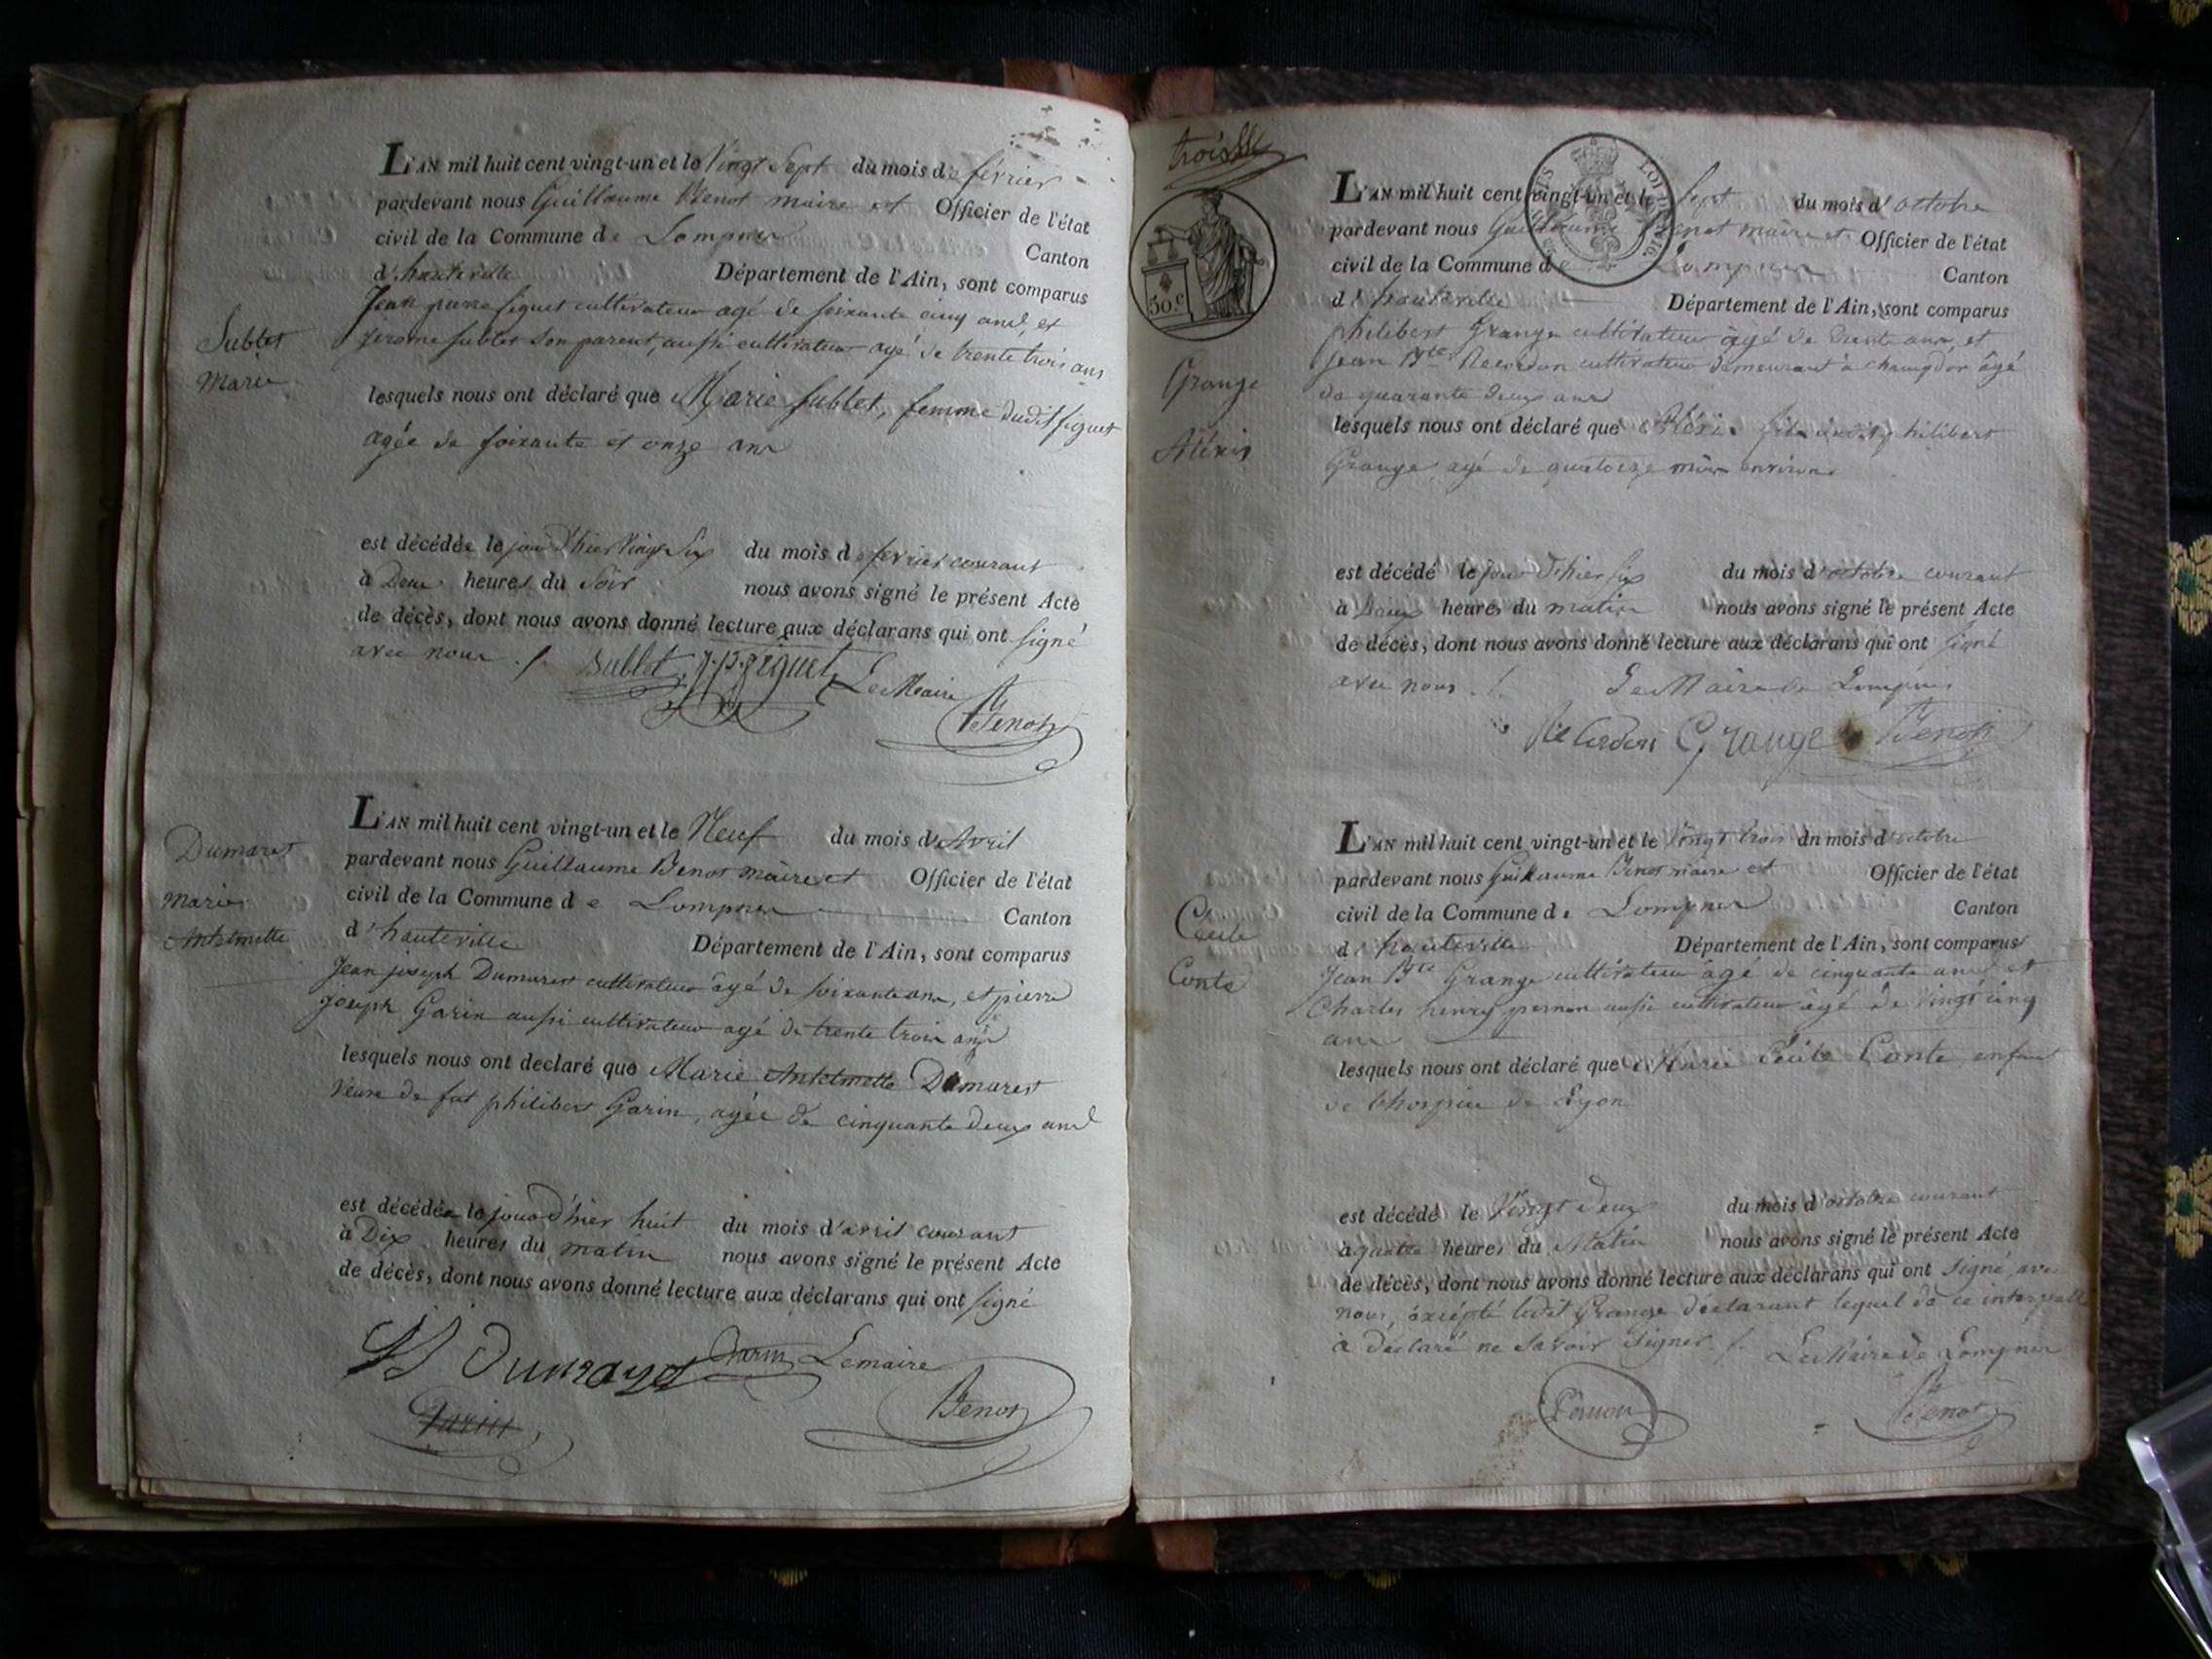 L'AN mil huit cent vingt-un et le Vingt Sept du mois de février
pardevant nous Guillaume Benot maire et Officier de l'état
civil de la Commune de Lompnes
Canton
d'hauteville Département de l'Ain, sont comparus
Jean pierre figuet cultivateur agé de soixante cinq ans, et
Jerome sublet son parent, aussi cultivateur agé de trente trois ans
Sublet
Marie
lesquels nous ont déclaré que Marie Sublet, femme dudit figuet
agée de soixante et onze ans
est décédée le jour d'hier vingt Six du mois de février courant
à Deux heures du Soir nous avons signé le présent Acte
de décès, dont nous avons donné lecture aux déclarans qui ont signé
avec nous ./. Sublet J.P. figuet Le Maire
Benot
L'AN mil huit cent vingt-un et le Neuf du mois d'Avril
pardevant nous Guillaume Benot maire et Officier de l'état
civil de la Commune de Lompnes Canton
d'hauteville Département de l'Ain, sont comparus
Dumarest
Marie
Antelmette
Jean joseph Dumarest cultivateur agé de soixante ans, et pierre
joseph Garin aussi cultivateur agé de trente trois ans
lesquels nous ont declaré que Marie Antelmette Dumarest
veuve de fut philibert Garin, agée de cinquante deux ans
est décédée le jour d'hier huit du mois d'avril courant
à Dix heures du matin nous avons signé le présent Acte
de décès, dont nous avons donné lecture aux déclarans qui ont signé
JJ Dumarest Garin Lemaire
Garin Benot
trois
50.c
L'AN mil huit cent vingt-un et le Sept du mois d'octobre
pardevant nous Guillaume Benot maire et Officier de l'état
civil de la Commune de Lompnes Canton
d'hauteville Département de l'Ain, sont comparus
philibert Grange cultivateur agé de trente ans, et
Jean Bte cultivateur demeurant à champdor âgé
de quarante deux ans
Grange
Aléxis
lesquels nous ont déclaré que Aléxis fils dudit philibert
Grange, agé de quatorze mois environ
est décédé le jour d'hier six du mois d'octobre courant
à Deux heures du matin nous avons signé le présent Acte
de décès, dont nous avons donné lecture aux déclarans qui ont signé
avec nous ./. Le Maire de Lompnes
Grange Benot
L'AN mil huit cent vingt-un et le Vingt trois du mois d'octobre
pardevant nous Guillaume Benot maire et Officier de l'état
civil de la Commune de Lompnes Canton
d'hauteville Département de l'Ain, sont comparus
Cécile
Conte
Jean Bte Grange cultivateur âgé de cinquante ans et
Charles henry pernon aussi cultivateur âgé de Vingt cinq
ans
lesquels nous ont déclaré que Marie Cécile Conte enfant
de l'hospice de Lyon
est décédé le Vingt deux du mois d'octobre courant
à quatre heures du Matin nous avons signé le présent Acte
de décès, dont nous avons donné lecture aux déclarans qui ont signé, avec
nous, éxcépté ledit Grange déclarant lequel de ce interpellé
à declaré ne savoir signer ./. Le Maire de Lompnes
Pernon Benot